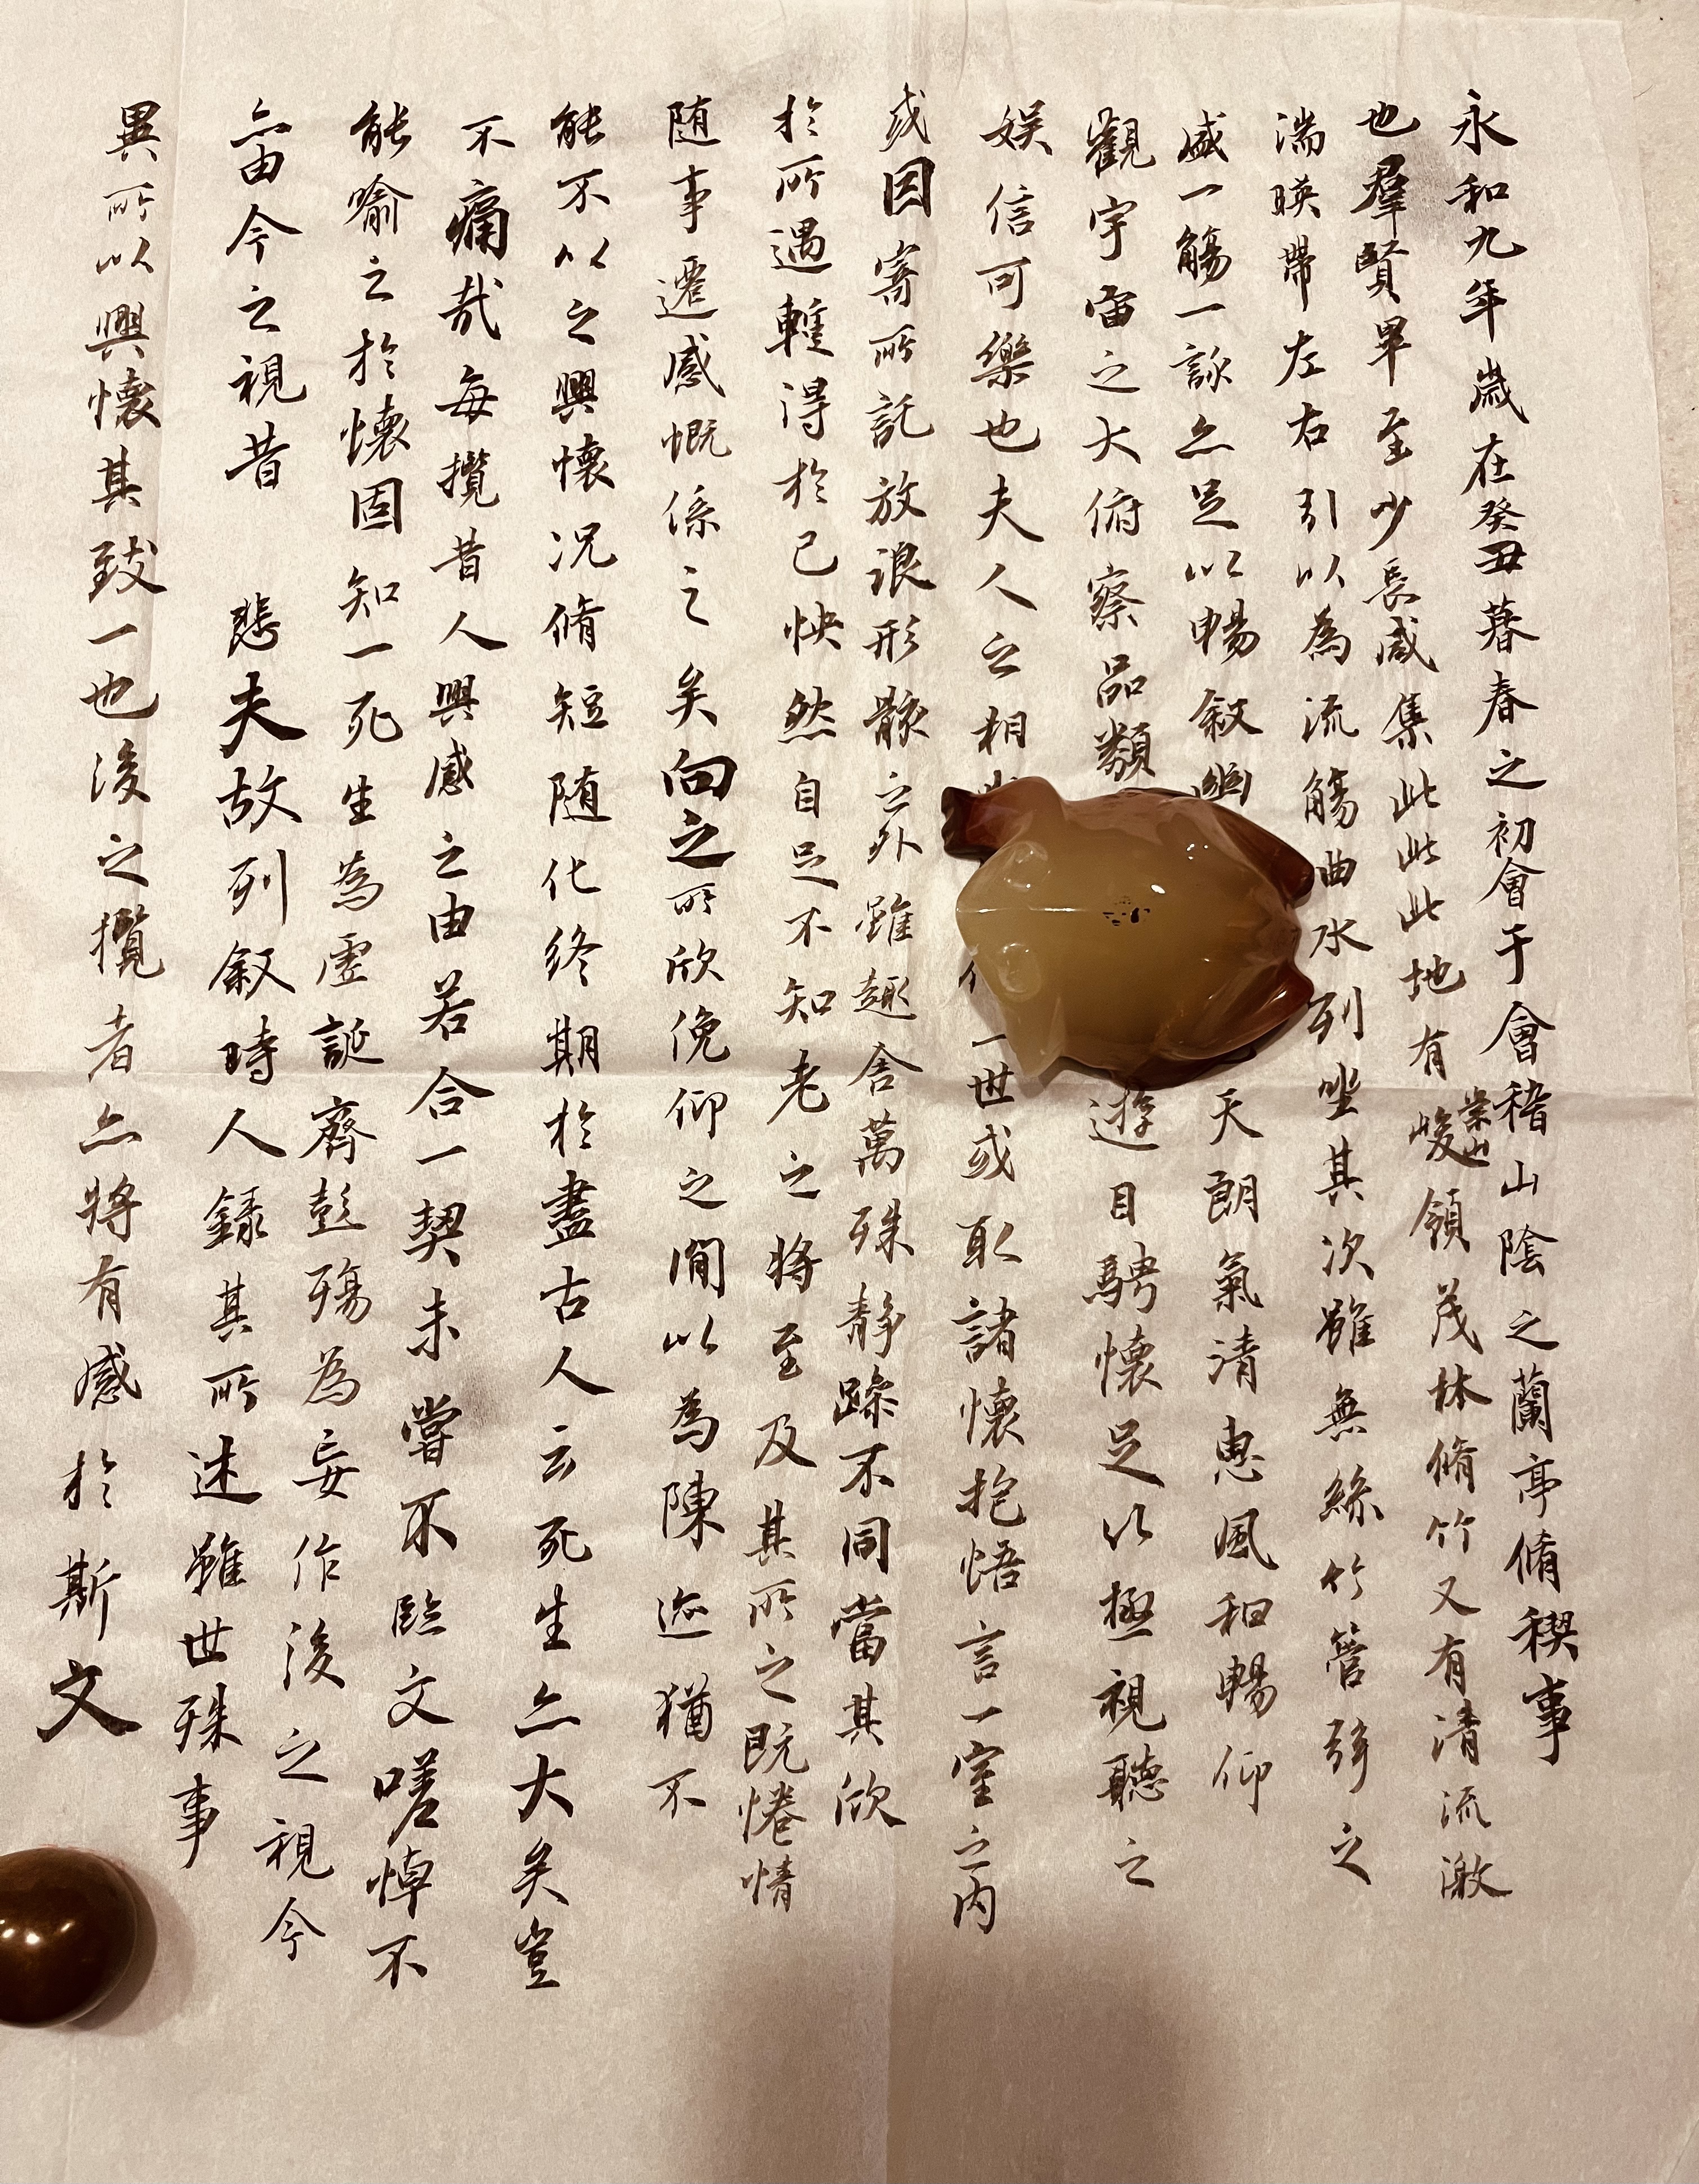 永和九年歲在癸丑暮春之初會于會稽山陰之蘭亭脩稧事
也羣賢畢至少長咸集此此此地有崇山峻領茂林脩竹又有清流激
湍暎帶左右引以為流觴曲水列坐其次雖無絲竹管弦之
盛一觴一詠亦足以暢叙幽天朗氣清惠風和暢仰
觀宇宙之大俯察品類遊目騁懷足以極視聽之
娛信可樂也夫人之相一世或取諸懷抱悟言一室之内
或因寄所託放浪形骸之外雖趣舍萬殊靜躁不同當其欣
於所遇蹔得於己怏然自足不知老之將至及其所之既惓情
随事遷感慨係之矣向之所欣俛仰之閒以為陳迹猶不
能不以之興懷况脩短随化終期於盡古人云死生亦大矣豈
不痛哉每攬昔人興感之由若合一契未嘗不臨文嗟悼不
能喻之於懷固知一死生為虛誕齊彭殤為妄作後之視今
亦由今之視昔 悲夫故列叙時人録其所述雖世殊事
異所以興懷其致一也後之攬者亦將有感於斯文